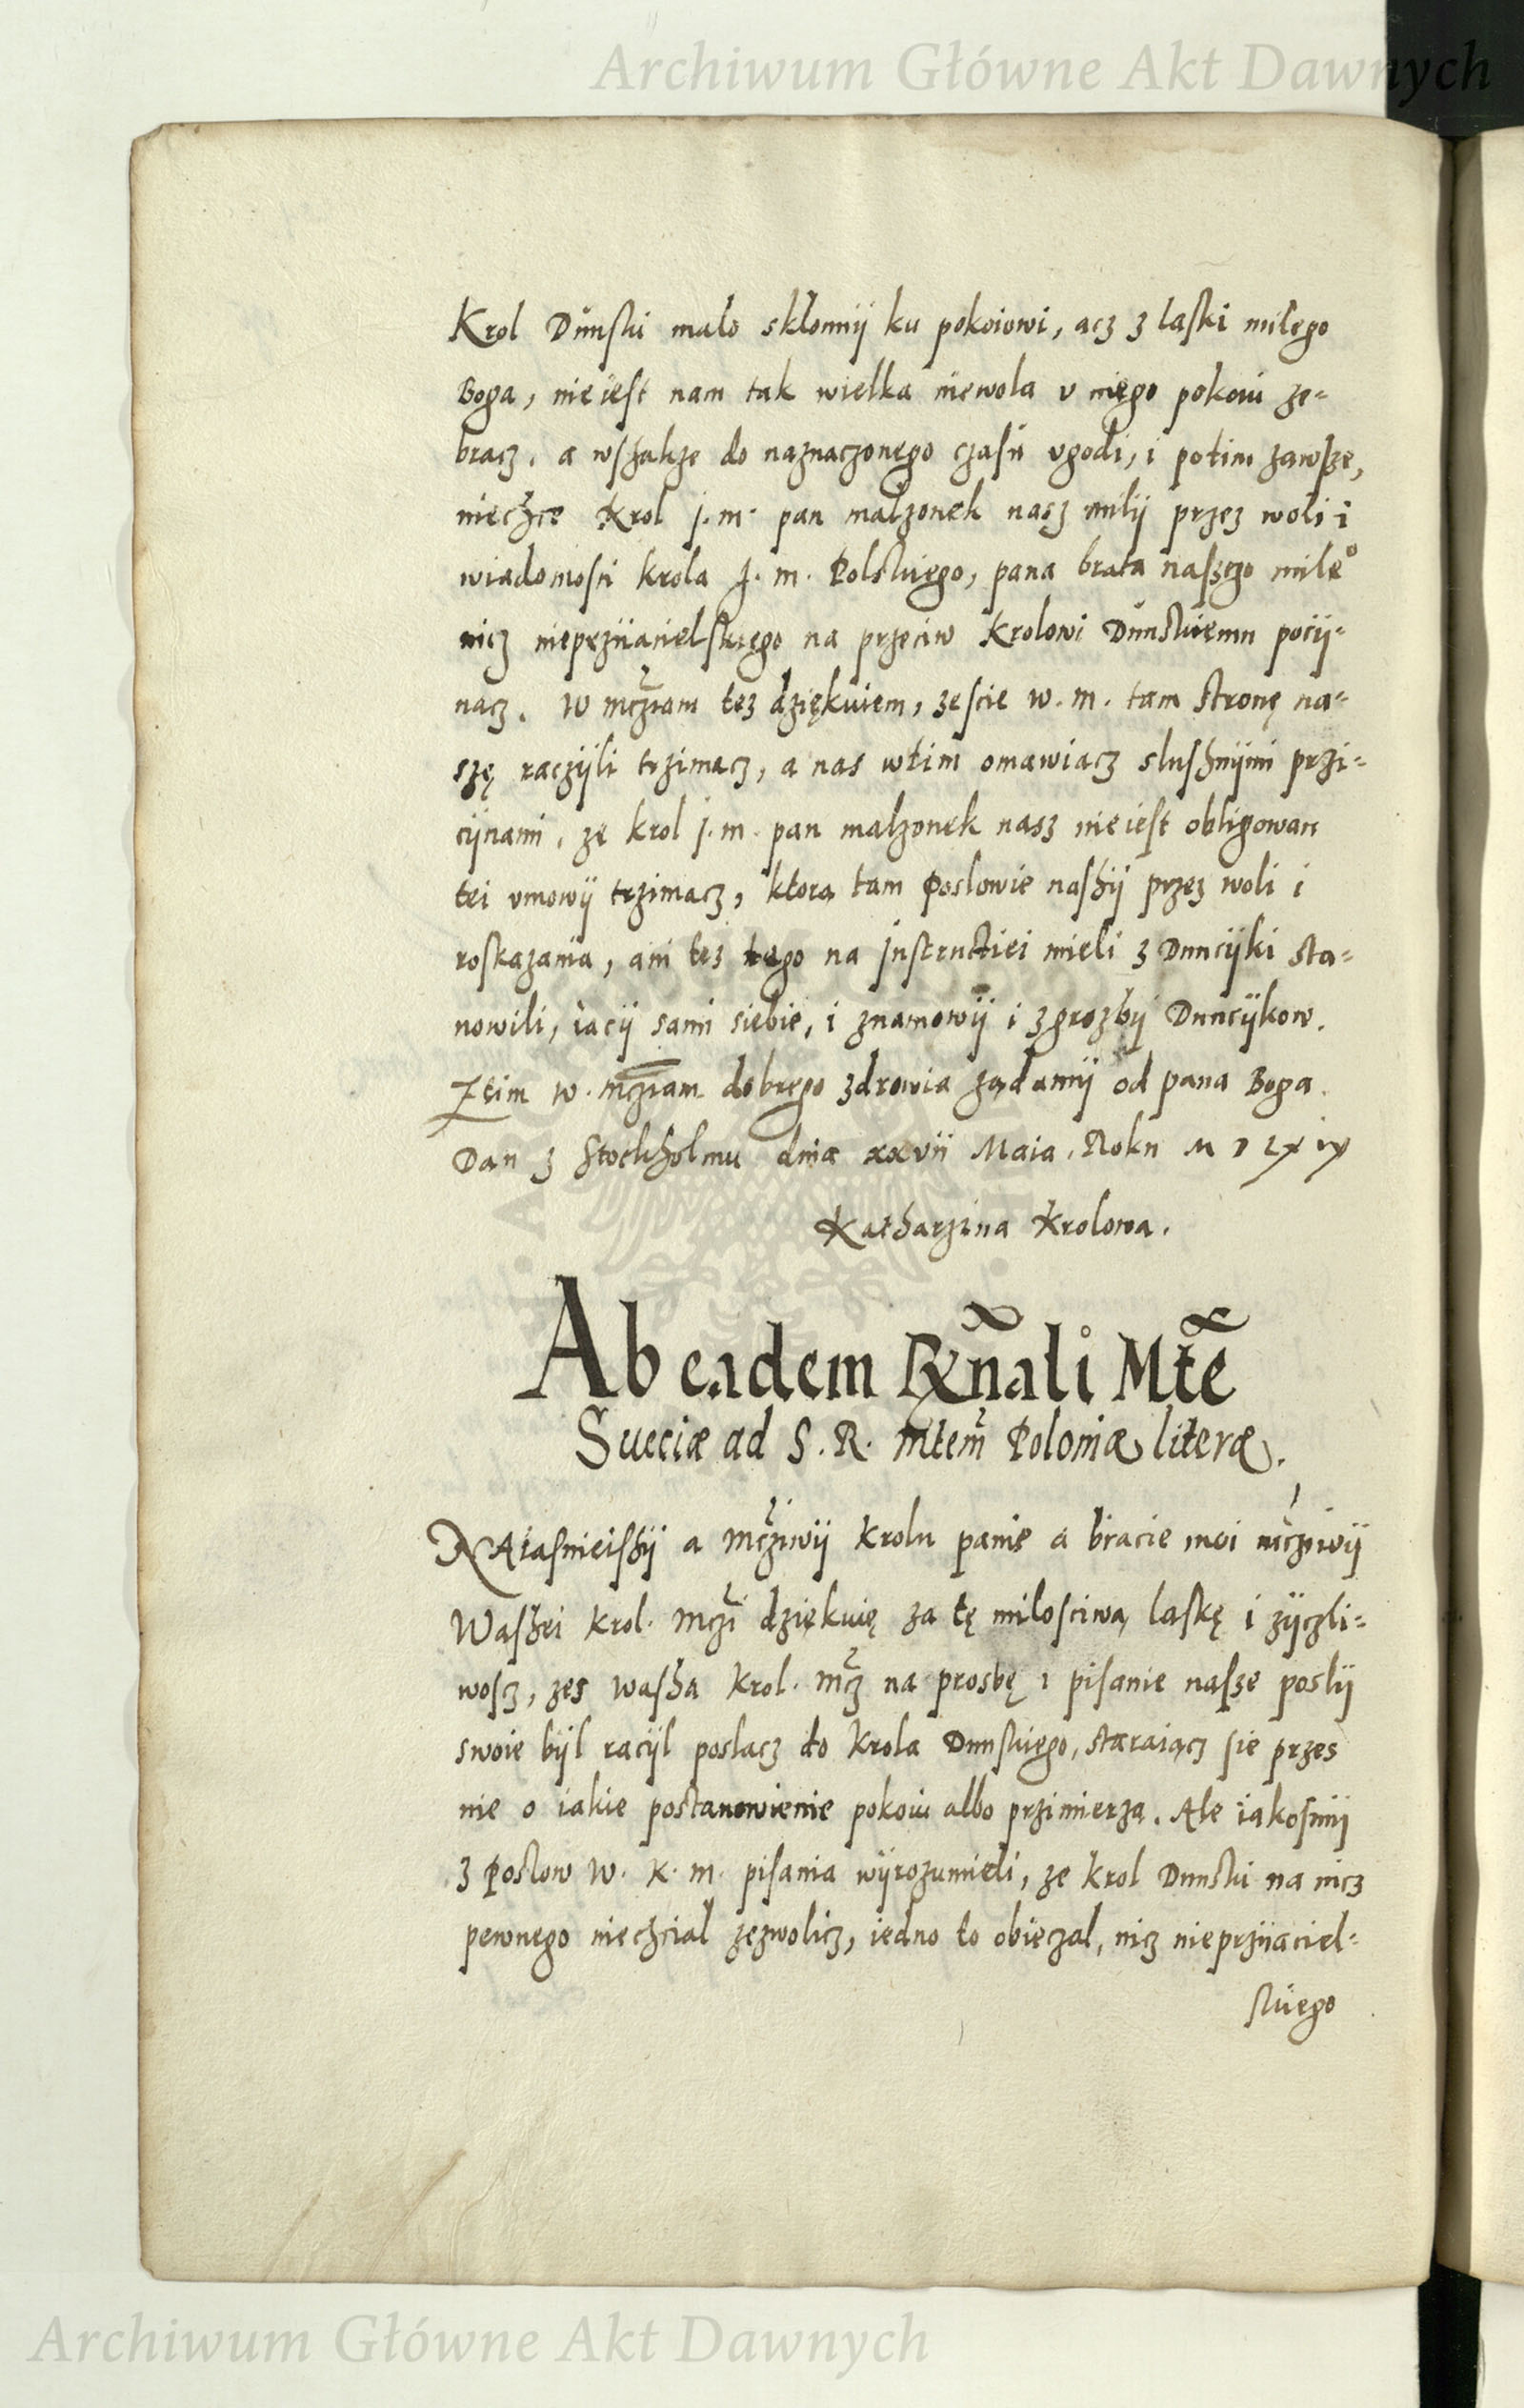 Archiwum Główne Akt Dawnych
Krol Dunski malo sklonnij ku pokoiowi, acz z laski milego
Boga, nie iest nam tak wielka niewola v niego pokoiu ze-
bracz. a wszakze do naznaczonego czasu vgodi, i potim zawsze,
niechce Krol j. m. pan malzonek nasz milij przez woli i
wiadomosci krola J. m. Polskiego, pana brata naszego mile°
nicz nieprzijacielskiego na przeciw Krolowi Dunskiemu pocij-
nacz. W mcziam tez dziękuiem, zescie w. m. tam stronę na-
szę raczijli trzimacz, a nas wtim omawiacz slusznijmi przi-
cijnami, ze krol j. m. pan malzonek nasz nie iest obligowan
tei vmowij trzimacz, ktorą tam Poslowie naszij przez woli i
roskazania, ani tez tego na jnstructiei mieli z Duncijki sta-
nowili, iacij sami siebie, i znamowij i zgrozbij Duncijkow.
Ztim w. mcziam dobrego zdrowia ządamij od pana Boga.
Dan z Stockholmu dnia xxvii Maia. Roku M D LX ix
Katharzina Krolowa.
Ab eadem Rx̃nali Mtẽ
Sueciæ ad S. R. Mtem Poloniæ literæ.
NAiasnieiszij a Mcziwij Krolu panie a bracie moi mcziwij
Waszei Krol. Mczi dziękuię za tę milosciwą laskę i zijczli-
woscz, zes wasza Krol. Mcz na prosbę i pisanie nasze poslij
swoie bijl racijl poslacz do Krola Dunskiego, staraiącz sie przes
nie o iakie postanowienie pokoiu albo przimierza. Ale iakosmij
z Poslow W. K. M. pisania wijrozumieli, ze krol Dunski na nicz
pewnego niechcial zezwolicz, iedno to obieczal, nicz nieprzijaciel-
skiego
Archiwum Główne Akt Dawnych